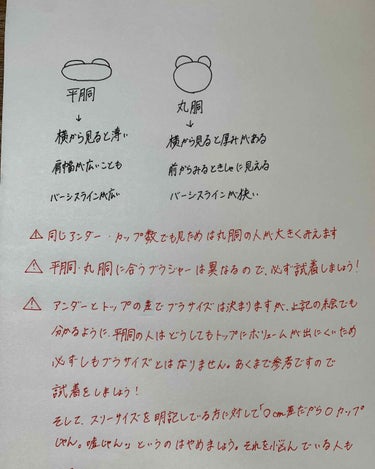 平胴
丸胴
↓
↓
横から見ると薄い
横から見ると厚みがある
肩幅が広いことも
前からみるときしゃに見える
バーシスラインが広い
バーシスラインが狭い
⚠同じアンダー・カップ数でも見ためは丸胴の人が大きくみえます
⚠平胴・丸胴に合うブラジャーは異なるので、必ず試着しましょう!
⚠アンダーとトップの差でブラサイズは決まりますが、上記の絵でも
分かるように、平胴の人はどうしてもトップにボリュームが出にくいため
必ずしもブラサイズとはなりません。あくまで参考ですので
試着をしましょう!
そして、スリーサイズを明記している方に対して「〇cm差だから〇カップ
じゃん。嘘じゃん」というのはやめましょう。それを悩んでいる人も